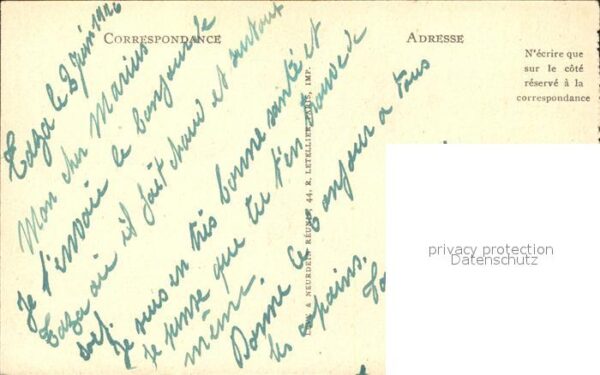 CORRESPONDANCE
ADRESSE
N'écrire que
sur le côté
réservé à la
correspondance
Taza le 2 Juin 1926
Mon cher Marius
Je t'envoie le bonjour de
Taza où il fait chaud et surtout
soif.
Je suis en très bonne santé et
je pense que tu t'en trouve de
même.
Donne le bonjour a tous
les copains.
LÉVY & NEURDEIN RÉUNIS, 44, R. LETELLIER, PARIS, IMP.
privacy protection
Datenschutz